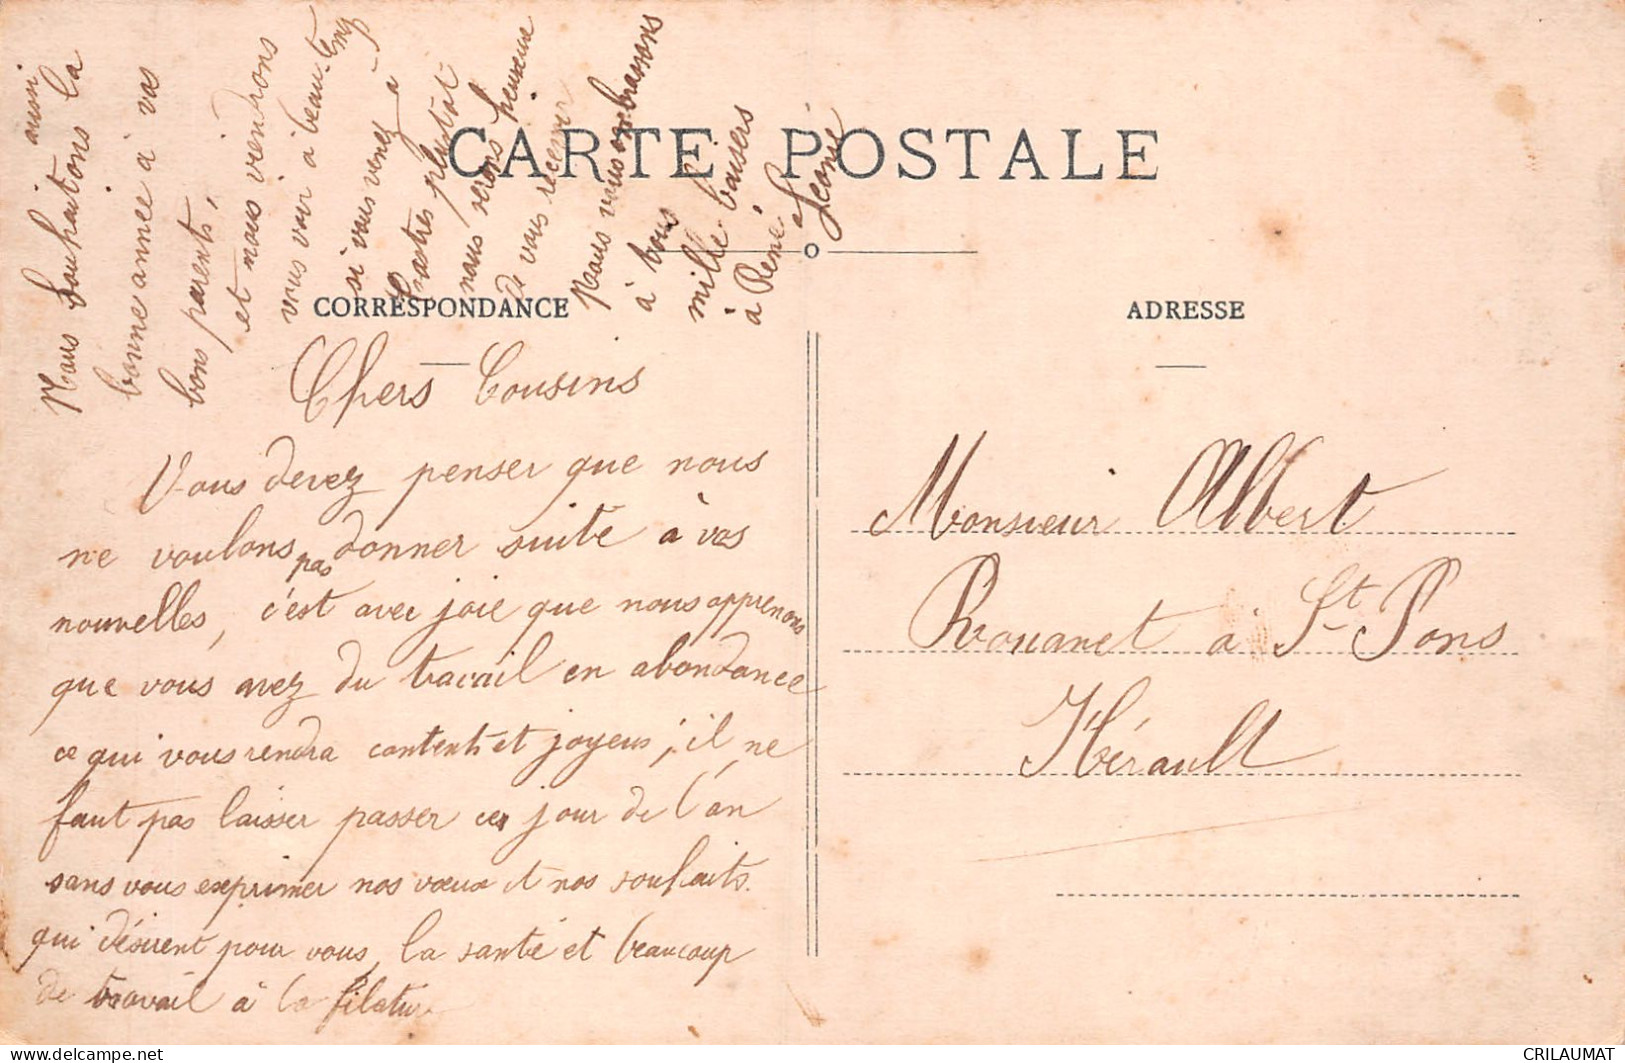 CARTE POSTALE
CORRESPONDANCE
ADRESSE
Chers Cousins
Vous devez penser que nous
ne voulons pas donner suite à vos
nouvelles, c'est avec joie que nous apprenons
que vous avez du travail en abondance
ce qui vous rendra contents et joyeux; il ne
faut pas laisser passer ces jour de l'an
sans vous exprimer nos vœux et nos souhaits.
qui désirent pour vous, la santé et beaucoup
de travail à la filature
Nous souhaitons aussi la
bonne année à vos
bons parents,
et nous viendrons
vous voir à beau temps
si vous venez à
plustôt
nous serons heureux
de vous recevoir
Nous vous embrassons
à tous
mille baisers
à René Léonie
Monsieur Albert
Rouanet à St-Pons
Hérault
CRILAUMAT